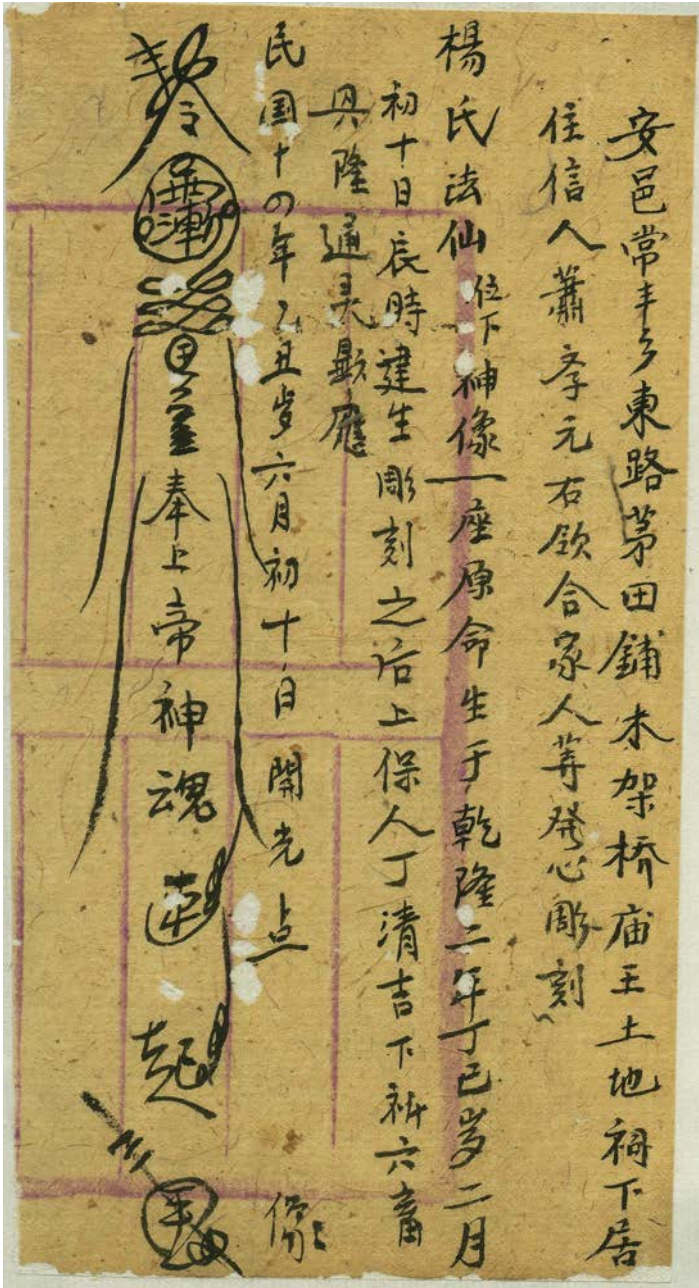 安邑常丰乡東路茅田鋪木架橋庙王土地祠下居
住信人蕭孝元右欽合家人等発心彫刻
楊氏法仙位下神像一座原命生于乾隆二年丁巳岁二月
初十日辰時建生彫刻之后上保人丁清吉下祈六畜
興隆通灵顯應
民国十四年乙丑岁六月初十日開光点像
奉上帝神魂起